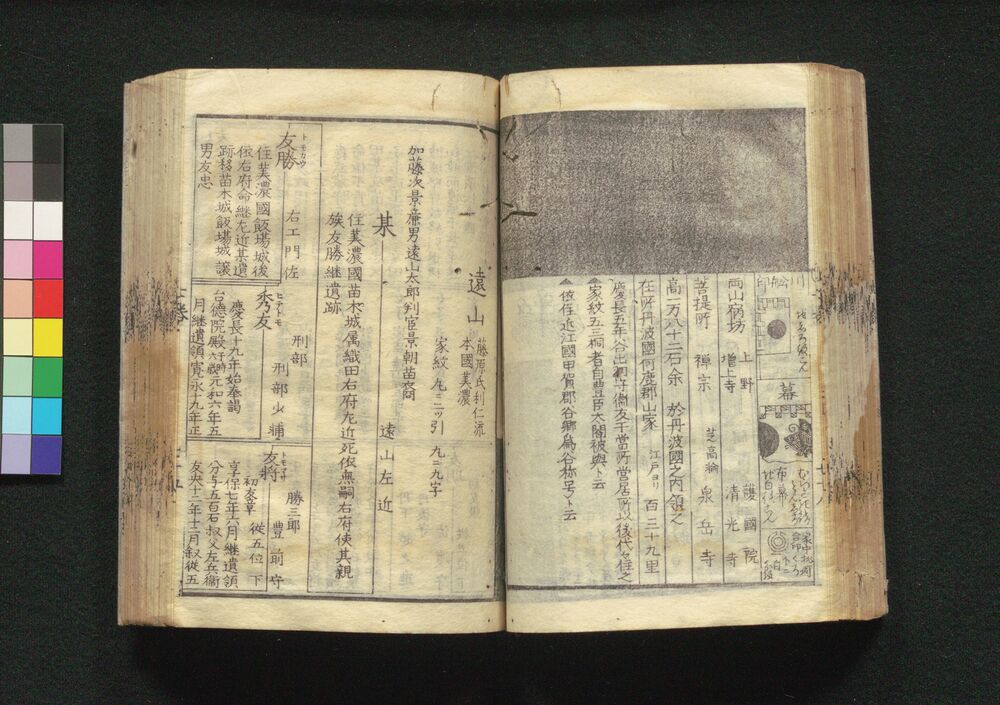 幕
両山宿坊 上野 護國院
増上寺 清光寺
菩提所 禅宗 芝高輪 泉岳寺
高一万八十二石余 於丹波國之内領之
在所丹波國何鹿郡山家 江戸ヨリ 百三十九里
慶長五年谷出羽守衛友于當所営居所以後代々住之
家紋五三桐者自豊臣太閤被與ト云
依住近江國甲賀郡谷郷為谷称号ト云
遠山 藤原氏利仁流
本國美濃
家紋 丸ニ二ツ引 九ニ九字
加藤次景廉男遠山太郎判官景朝苗裔
某 遠山左近
住美濃國苗木城属織田右府左近死依無嗣右府使其親
族友勝継遺跡
友勝 トモカツ 右エ門佐
住美濃國飯場城後
依右府命継左近某遺
跡移苗木城飯場城譲
男友忠
秀友 ヒテトモ 刑部 刑部少輔
慶長十九年始奉謁
台德院殿 元和六年五
月継遺領寛永十九年正
友将 トモマサ 勝三郎 豊前守
初友章 従五位下
享保七年六月継遺領
分与五百石叔父左兵衛
友央十二年十二月叙従五